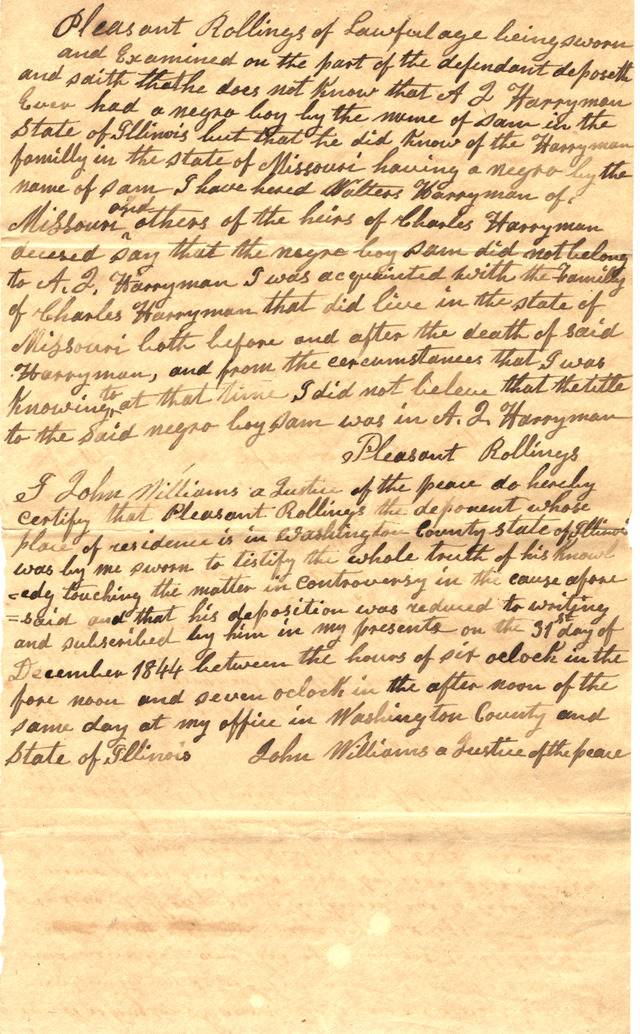 Pleasant Rollings of Lawful age being sworn
and Examined on the part of the defendant deposeth
and saith that he does not know that A J Harryman
Ever had a negro boy by the name of sam in the
State of Illinois but that he did know of the Harryman
familly in the state of Missouri having a negro by the
name of sam I have hered Walters Harryman of
Missouri and others of the heirs of Charles Harryman
decesed say that the negro boy sam did not belong
to A. J. Harryman I was acquainted with the familly
of Charles Harryman that did live in the state of
Missouri both before and after the death of said
Harryman, and from the cercumstances that I was
knowing to at that time I did not beleve that the title
to the said negro boy sam was in A. J. Harryman
Pleasant Rollings
I John Williams a Justice of the peace do hereby
certify that Pleasant Rollings the deponent whose
place of residence is in Washington County state of Illinois
was by me sworn to testify the whole truth of his knowl
=edg touching the matter in controversy in the cause afore
=said and that his deposition was reduced to writing
and subscribed by him in my presents on the 31st day of
December 1844 between the hours of six oclock in the
fore noon and seven oclock in the after noon of the
same day at my office in Washington County and
State of Illinois John Williams a Justice of the peace